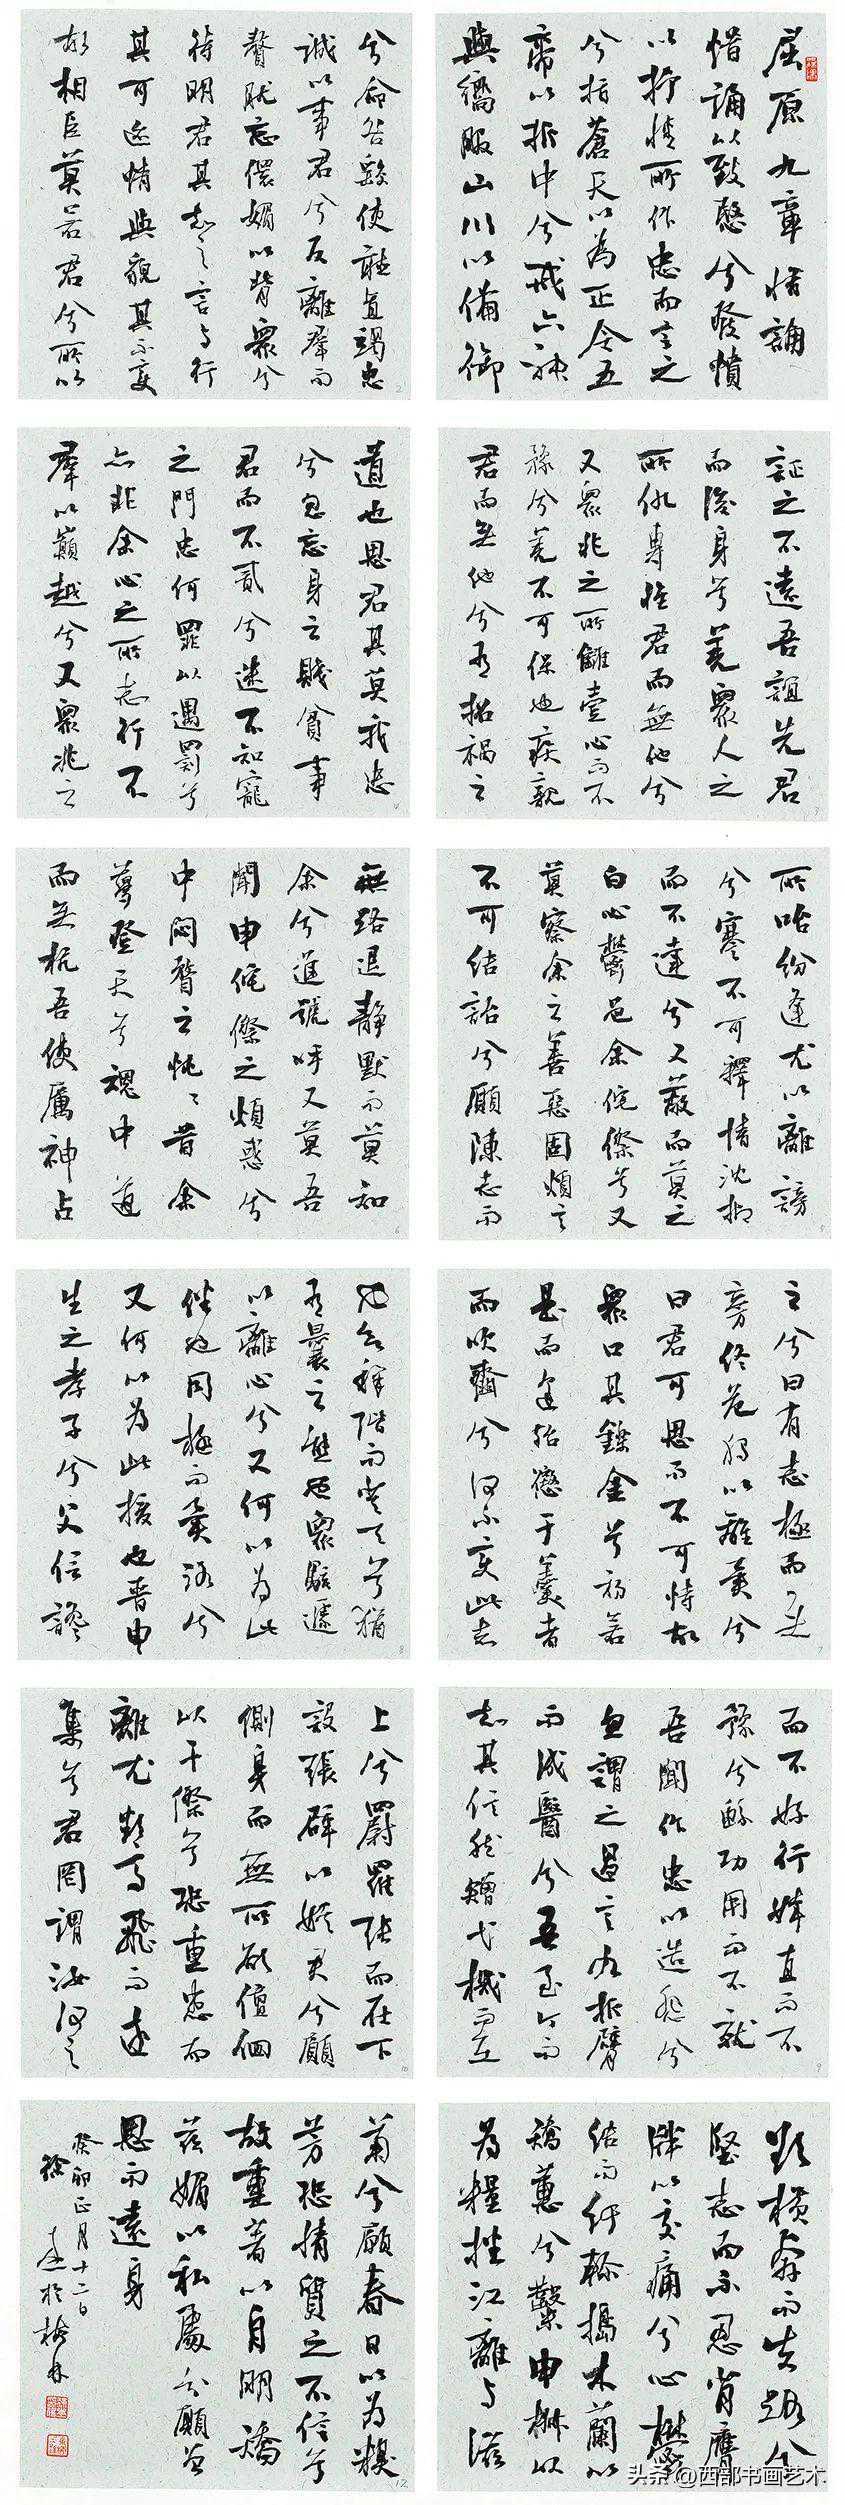 屈原九章惜誦
惜誦以致愍兮發憤
以抒情所作忠而言之
兮指蒼天以為正令五
帝以折中兮戒六神
與嚮服山川以備御
兮命咎繇使聽直竭忠
誠以事君兮反離羣而
贅肬忘儇媚以背衆兮
待明君其知之言與行
其可迹情與貌其不變
故相臣莫若君兮所以
証之不遠吾誼先君
而後身兮羌衆人之
所仇專惟君而無他兮
又衆兆之所讎壹心而不
豫兮羌不可保也疾親
君而無他兮有招禍之
道也思君其莫我忠
兮忽忘身之賤貧事
君而不貳兮迷不知寵
之門忠何罪以遇罰兮
亦非余心之所志行不
羣以巔越兮又衆兆之
所咍紛逢尤以離謗
兮謇不可釋情沈抑
而不達兮又蔽而莫之
白心鬱邑余侘傺兮又
莫察余之善惡固煩言
不可結詒兮願陳志而
無路退靜默而莫知
余兮進號呼又莫吾
聞申侘傺之煩惑兮
中悶瞀之忳忳昔余
夢登天兮魂中道
而無杭吾使厲神占
之兮曰有志極而無
旁終危獨以離異兮
曰君可思而不可恃故
衆口其鑠金兮初若
是而逢殆懲于羹者
而吹齏兮何不變此志
也欲釋階而登天兮猶
有曩之態也衆駭遽
以離心兮又何以為此
伴也同極而異路兮
又何以為此援也晉申
生之孝子兮父信讒
而不好行婞直而不
豫兮鯀功用而不就
吾聞作忠以造怨兮
忽謂之過言九折臂
而成醫兮吾至今而
知其信然矰弋機而在
上兮罻羅張而在下
設張辟以娛君兮願
側身而無所欲儃佪
以干傺兮恐重患而
離尤欲高飛而遠
集兮君罔謂汝何之
欲橫奔而失路兮
堅志而不忍背膺
牉以交痛兮心鬱
結而紆軫擣木蘭以
矯蕙兮糳申椒以
為糧播江離與滋
菊兮願春日以為糗
芳恐情質之不信兮
故重著以自明矯
茲媚以私處兮願曾
思而遠身
癸卯正月十二日
徐
头条 @西部书画艺术